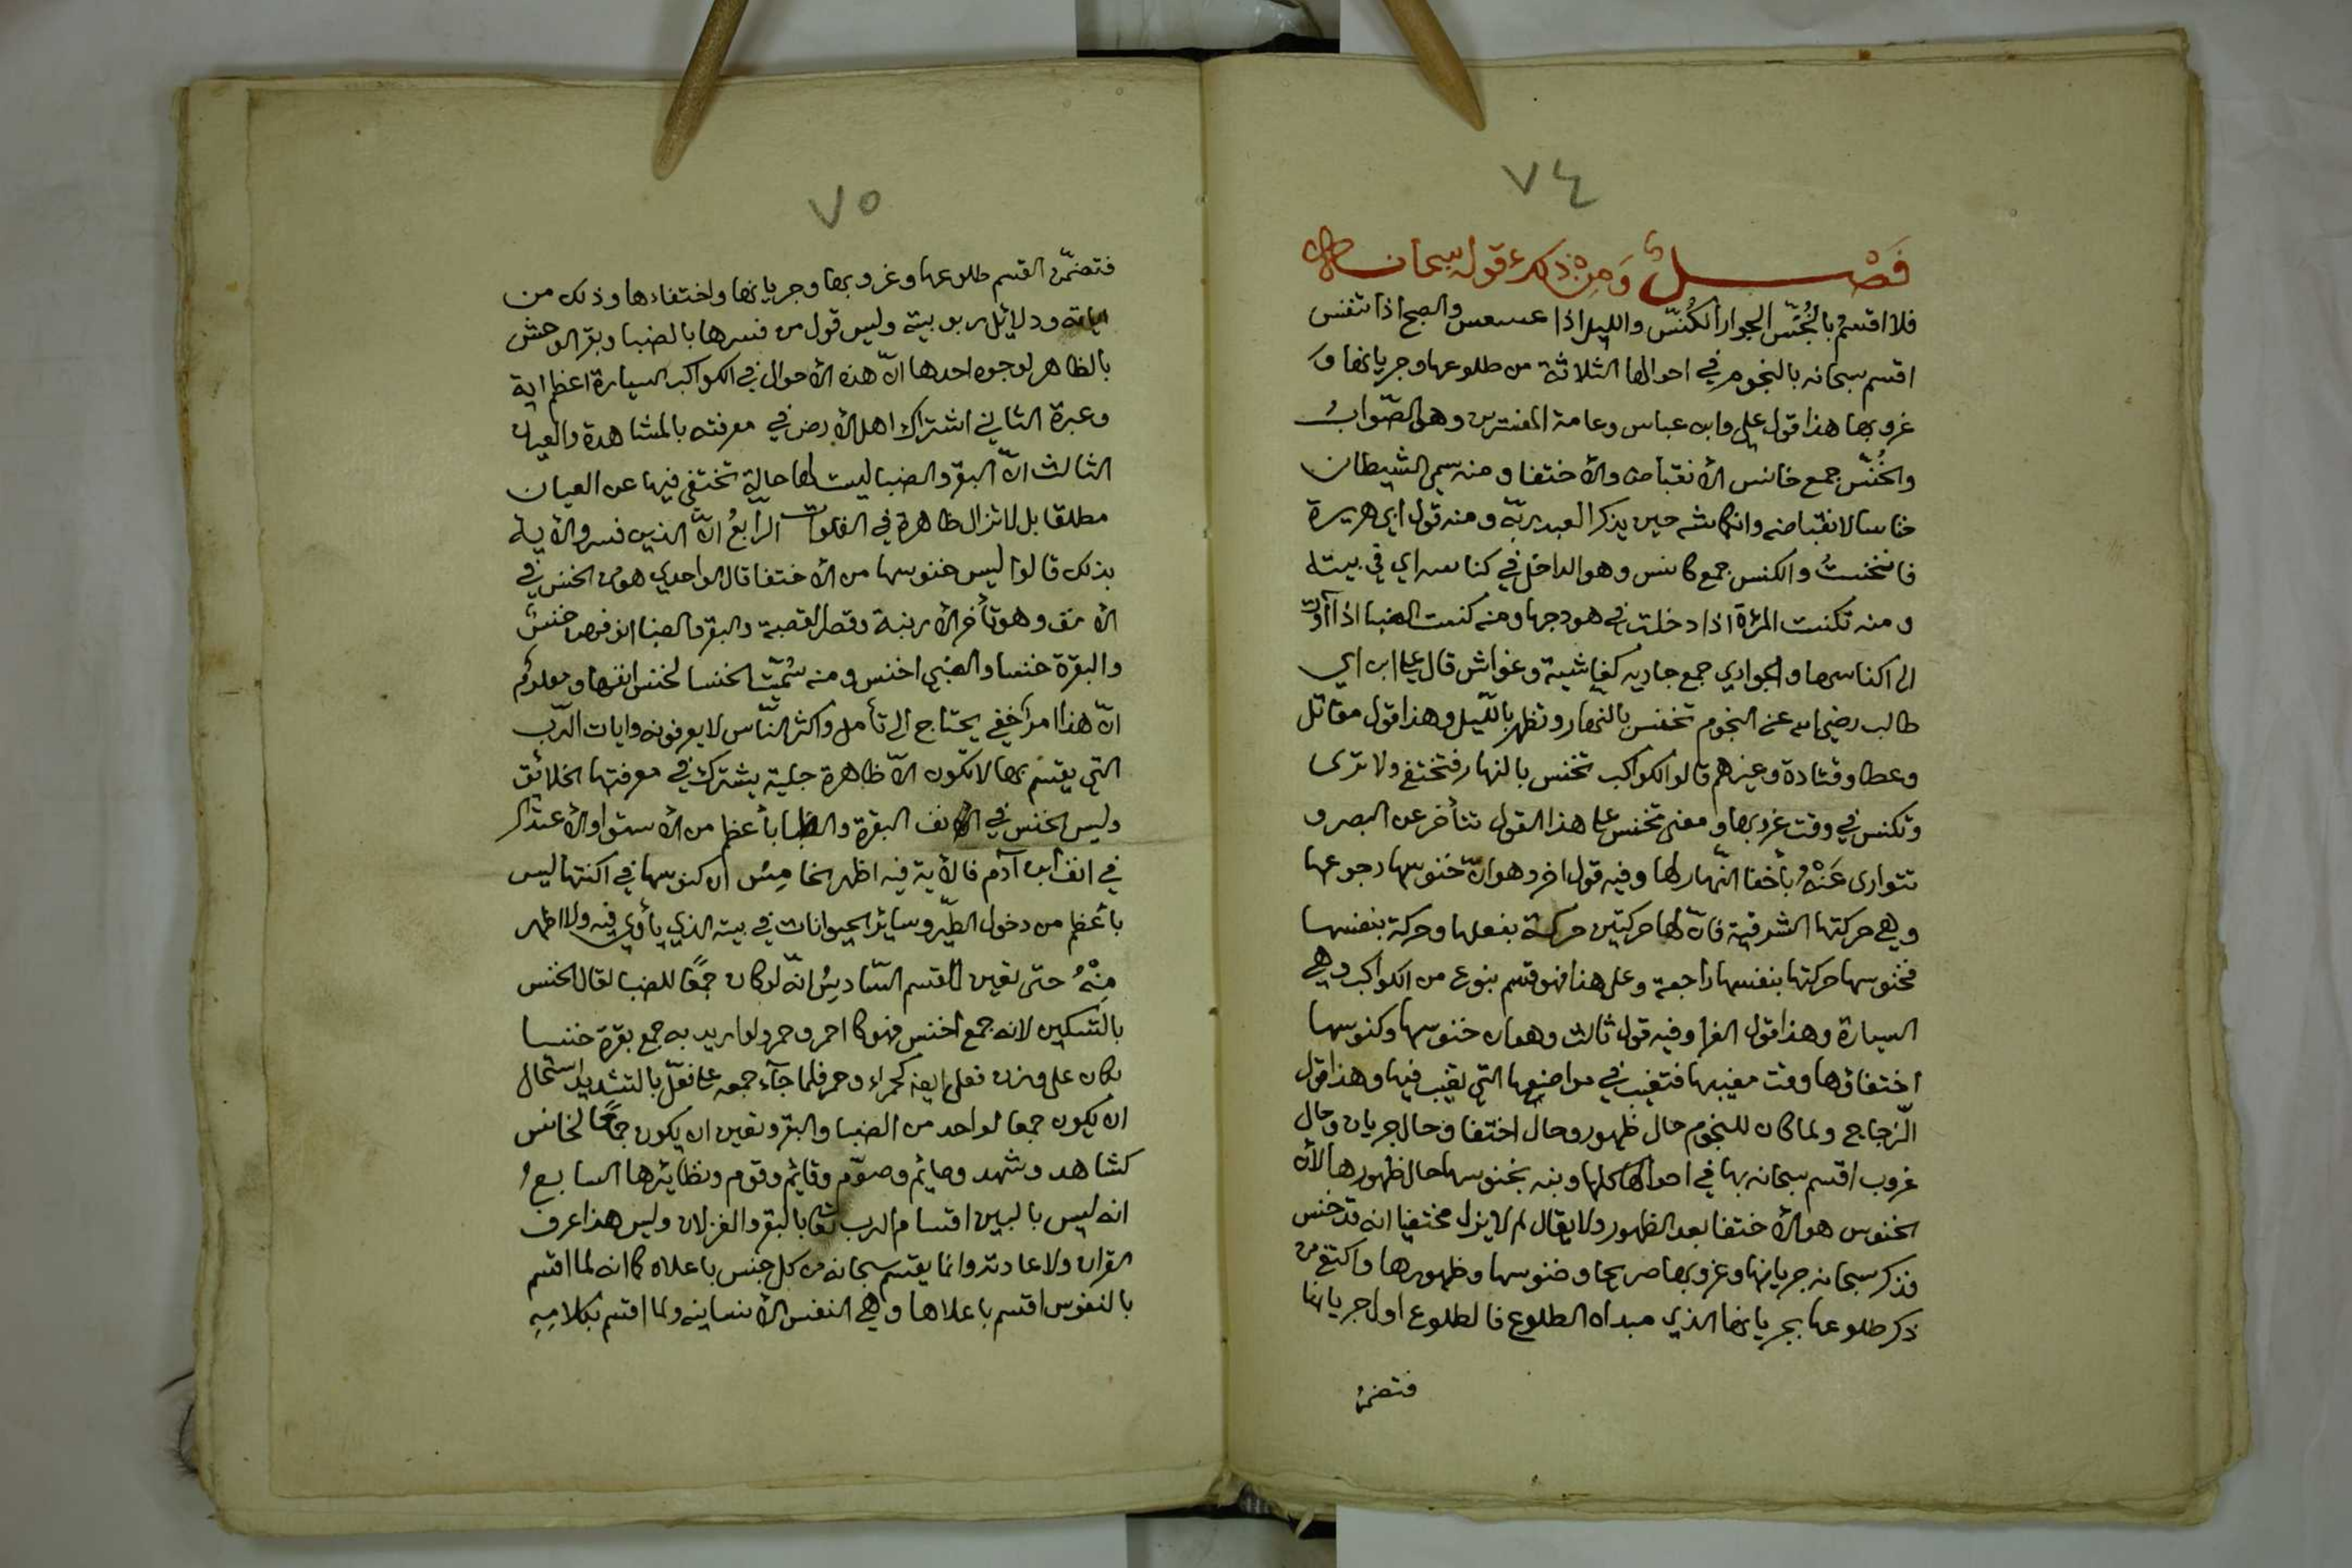 ٧٤
فَصْــــــلٌ وَمِنْ ذلك قوله سبحانه
فلا اقسم بالخُنَّس الجوار الكُنَّس والليل اذا عسعس والصبح اذا تنفس
اقسم سبحانه بالنجوم في احوالها الثلاثة من طلوعها وجريانها و
غروبها هذا قول علي وابن عباس وعامة المفسرين وهو الصّوابُ
والخُنَّس جمع خانس الانقباض والاختفا ومنه سمي الشيطان
خناسا لانقباضه وانكماشه حين يذكر العبد ربّه ومنه قول ابي هريرة
فانخنستُ والكنس جمع كانس وهو الداخل في كناسه اي في بيته
ومنه تكنست المرأة اذا دخلت في هودجها ومنه كنست الضبا اذا آوت
الى اكناسها والجواري جمع جاريه كغاشية وغواش قال علي ابن ابي
طالب رضي الله عنه النجوم تخنس بالنهار وتظهر بالليل وهذا قول مقاتل
وعطا وقتادة وغيرهم قالوا الكواكب تخنس بالنهار فتختفي ولا ترى
وتكنس في وقت غروبها ومعنى تخنس على هذا القول تتأخر عن البصر و
تتوارى عَنْهُ بأخفا النّهار لها وفيه قول اخر وهو انّ خنوسها رجوعها
وهي حركتها الشرقية فانّ لها حركتين حركة بفعلها وحركة بنفسها
فخنوسها حركتها بنفسها راجعة وعلى هذا فهو قسم بنوع من الكواكب وهي
السيارة وهذا قول الفرا وفيه قول ثالث وهو ان خنوسها وكنوسها
اختفاؤها وقت مغيبها فتغيب في مواضعها التي تغيب فيها وهذا قول
الزجاج ولما كان للنجوم حال ظهور وحال اختفا وحال جريان وحال
غروب اقسم سبحانه بها في احوالها كلها ونبه بخنوسها حال ظهورها لأن
الخنوس هو الاختفا بعد الظهور ولا يقال لم لا يزل مختفيا انه قد خنس
فذكر سبحانه جريانها وغروبها صريحا وخنوسها وظهورها واكتفى من
ذكر طلوعها بجريانها الذي مبداه الطلوع فالطلوع اول جريانها
فتضمن
٧٥
فتضمّن القسم طلوعها وغروبها وجريانها واختفاءها وذلك من
اياته ودلائل ربوبيته وليس قول من فسرها بالضبا وبقر الوحش
بالظاهر لوجوه احدها انّ هذه الاحوال في الكواكب السيارة اعظم اية
وعبرة الثاني اشتراك اهل الأرض في معرفته بالمشاهدة والعيان
الثالث انّ البقر والضبا ليست لها حالة تختفي فيها عن العيان
مطلقا بل لا تزال ظاهرة في الفلوات الرابعُ انّ الذين فسروا الآية
بذلك قالوا ليس خنوسها من الاختفا قال الواحدي هو من الخنس في
الأنف وهو تأخر الأرنبة وقصر القصبة والبقر والضبا انوفهن خنس
والبقرة خنسا والضبي اخنس ومنه سُمّيت الخنسا لخنس انفها ومعلوم
انّ هذا امر خفي يحتاج الى تأمل واكثر النّاس لا يعرفونه وايات الرّب
التي يقسم بها لا تكون الاّ ظاهرة جلية يشترك في معرفتها الخلائق
وليس الخنس في الانف البقرة والظبا بأعظم من الاستوا والاعتدال
في انف ابن آدم فالأية فيه اظهر الخامِسُ ان كنوسها في اكنتها ليس
بأعظم من دخول الطّير وساير الحيوانات في بيته الذي يأوي فيه ولا اظهر
مِنْهُ حتى تعين القسم السّادِسُ انّه لو كان جمعًا للضبا لقال الخنس
بالتسكين لانه جمع اخنس فهو كاحمر وحمر ولو اريد به جمع بقرة خنسا
لكان على وزن فعل ايضا كحمراء وحمر فلما جآء جمعه على فعّل بالتشديد استحال
ان يكون جمعا لواحد من الضبا والبقر وتعين ان يكون جمعًا لخانس
كشاهد وشهد وصايم وصوّم وقايم وقوم ونظائرها السابعُ
انه ليس بالبين اقسام الرب تعا بالبقر والغزلان وليس هذا عرف
القران ولا عادته وانما يقسم سبحانه من كل جنس باعلاه كما انه لما اقسم
بالنفوس اقسم باعلاها وهي النفس الأنسانيه ولما اقسم بكلامِهِ